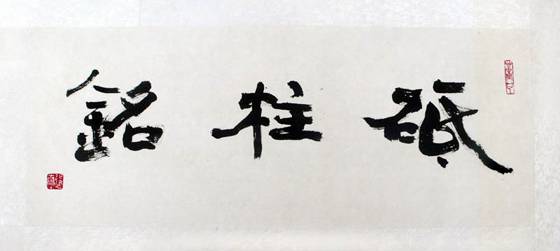 砥柱銘